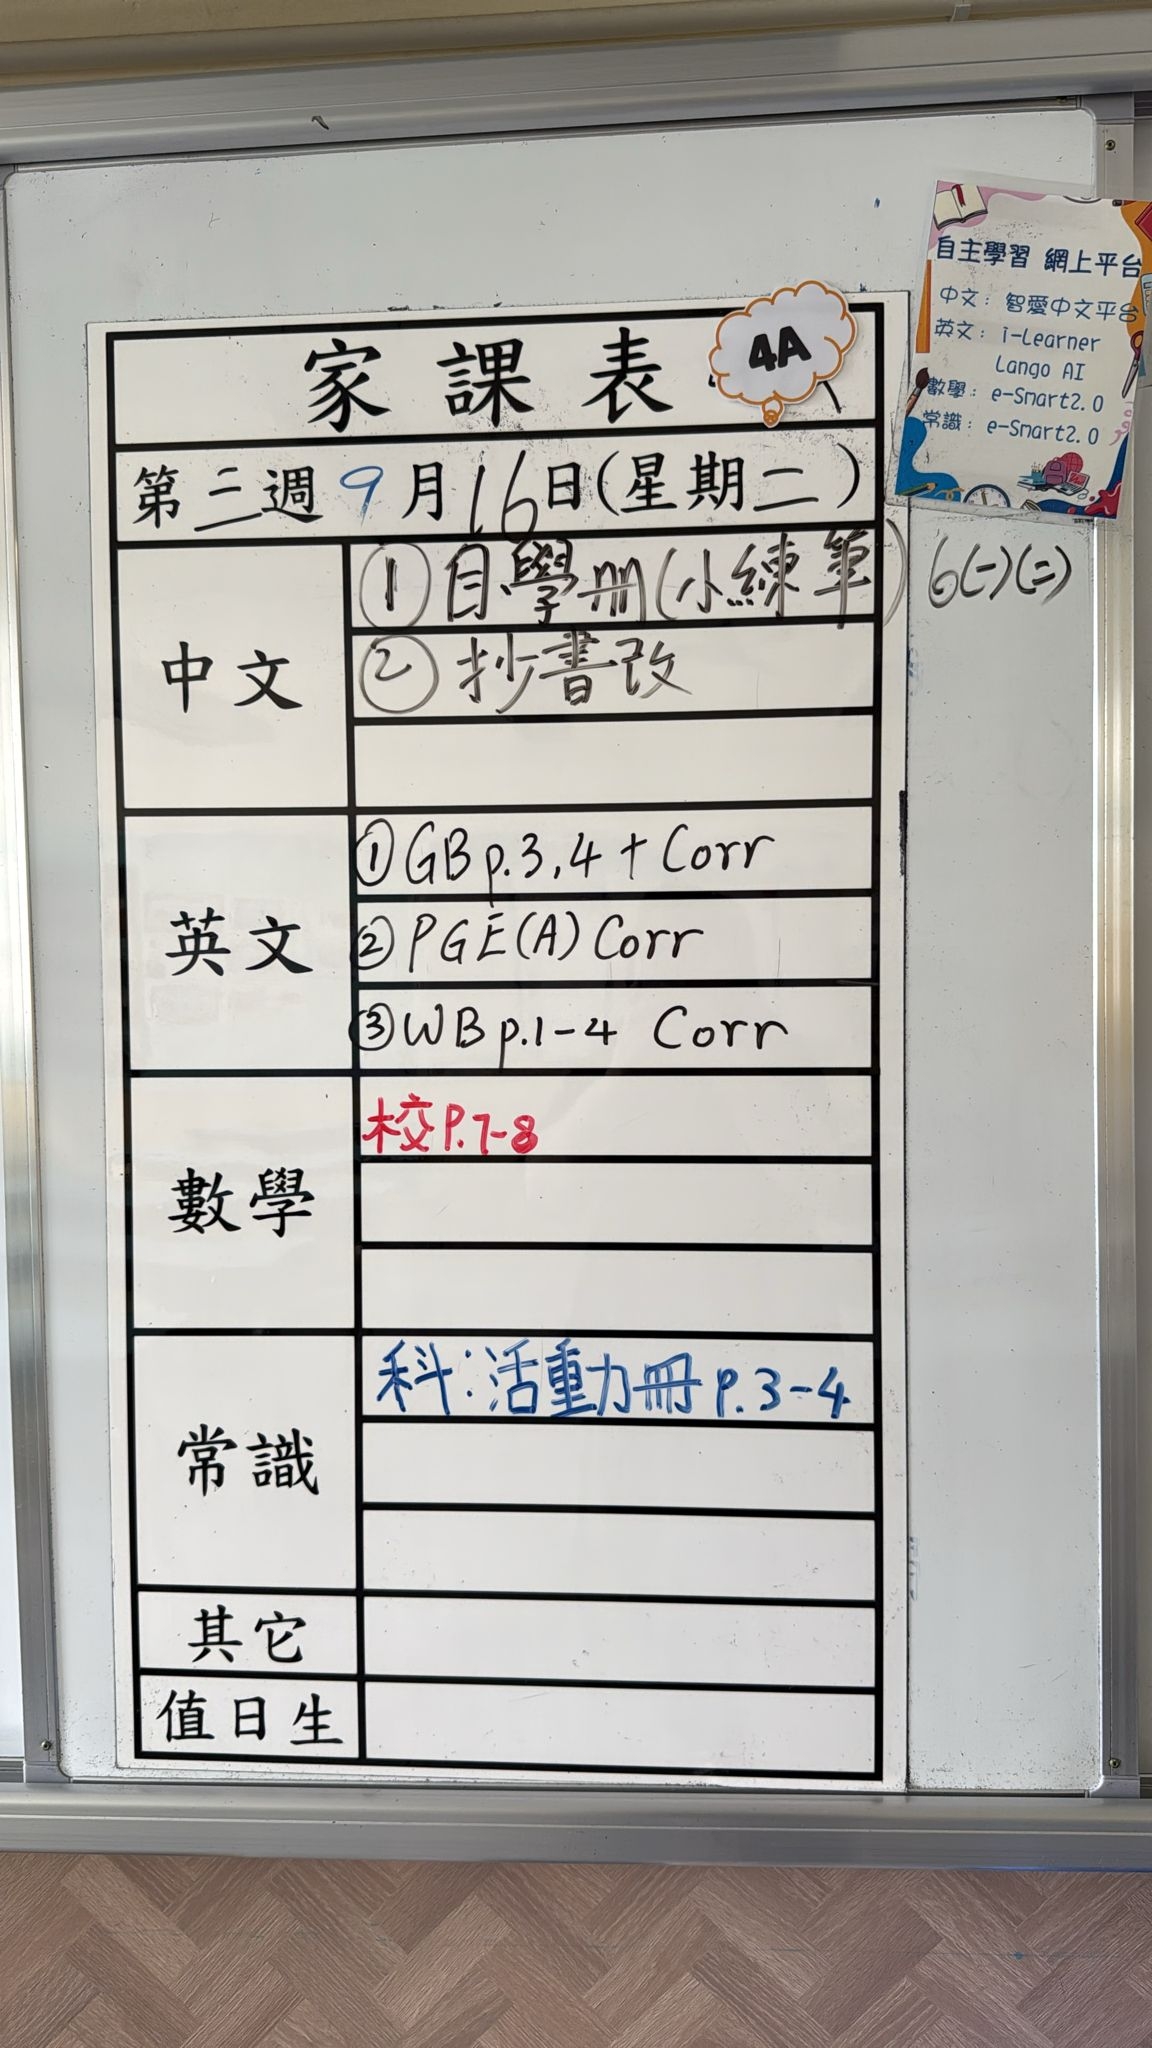 家課表
4A
第三週 9月16日(星期二)
中文
①自學冊(小練筆) 6(一)(二)
②抄書改
英文
①GB p.3,4 + Corr
②PGE(A) Corr
③WB p.1-4 Corr
數學
校P.7-8
常識
科:活動冊 p.3-4
其它
值日生
自主學習 網上平台
中文: 智愛中文平台
英文: i-Learner
Lango AI
數學: e-Smart2.0
常識: e-Smart2.0